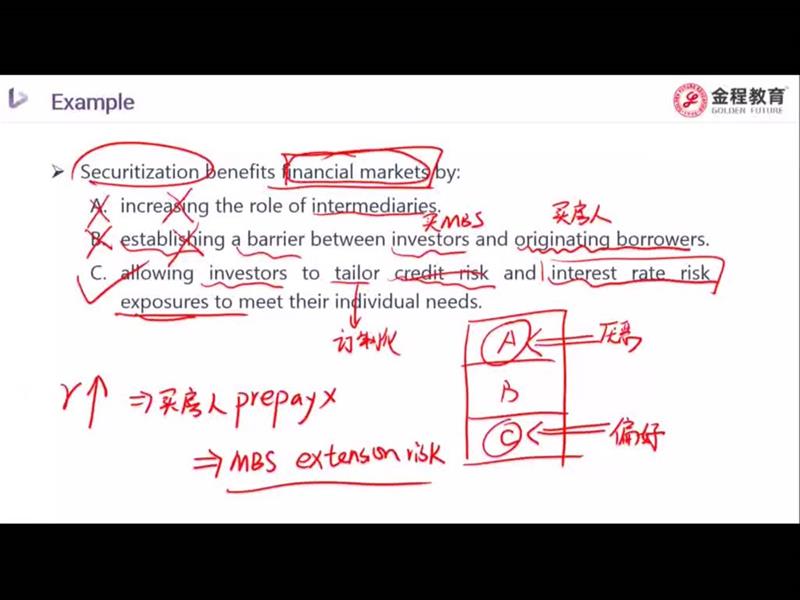 Example
金程教育
GOLDEN FUTURE
➢ Securitization benefits financial markets by:
A. increasing the role of intermediaries.
买MBS
买房人
B. establishing a barrier between investors and originating borrowers.
C. allowing investors to tailor credit risk and interest rate risk
exposures to meet their individual needs.
订制化
A
厌恶
r↑ ⇒ 买房人 prepay x
B
C
偏好
⇒ MBS extension risk